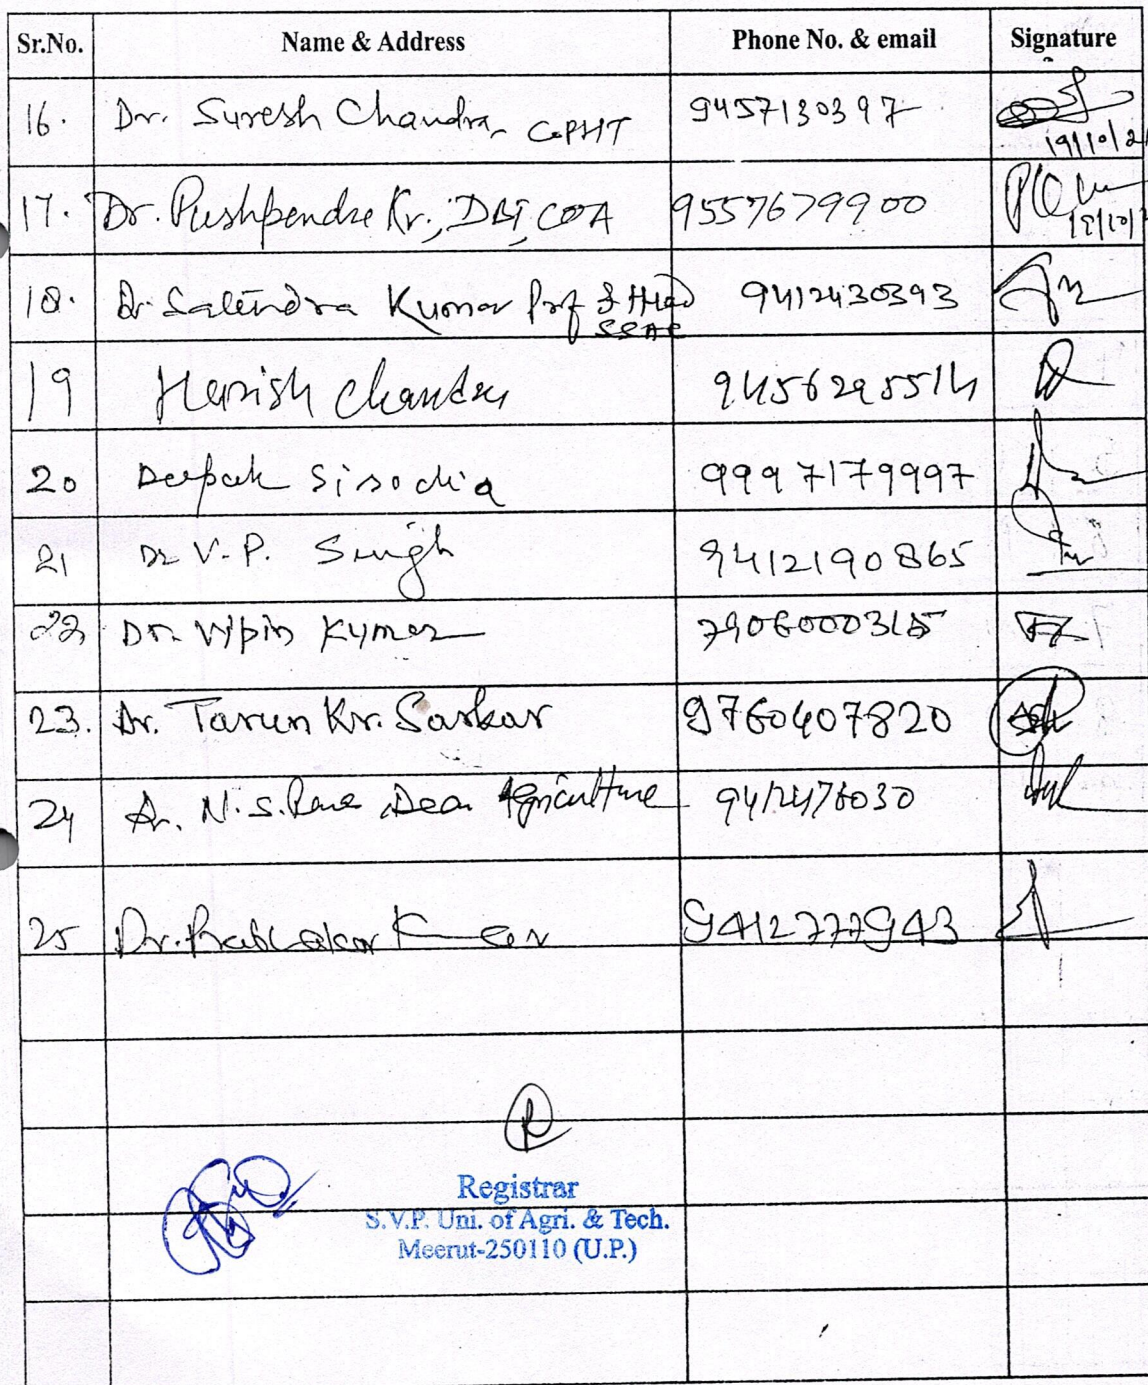 Sr.No. Name & Address Phone No. & email Signature
16. Dr. Suresh Chandra, CoPHT 9457130397
19/10/2
17. Dr. Pushpendra Kr., COA 9557679900
18. Dr. Satendra Kumar Prof & Head 9412430393
19 Harish Chandra 9456295514
20 Deepak Sisodia 9997179997
21 Dr V.P. Singh 9412190865
22 Dr. Vipin Kumar
23. Dr. Tarun Kr. Sarkar 9760407820
24 Dr. N.S. Rana, Dean Agriculture 9412476030
25 Dr. Prabhakar Kumar 9412777943
Registrar
S.V.P. Uni. of Agri. & Tech.
Meerut-250110 (U.P.)